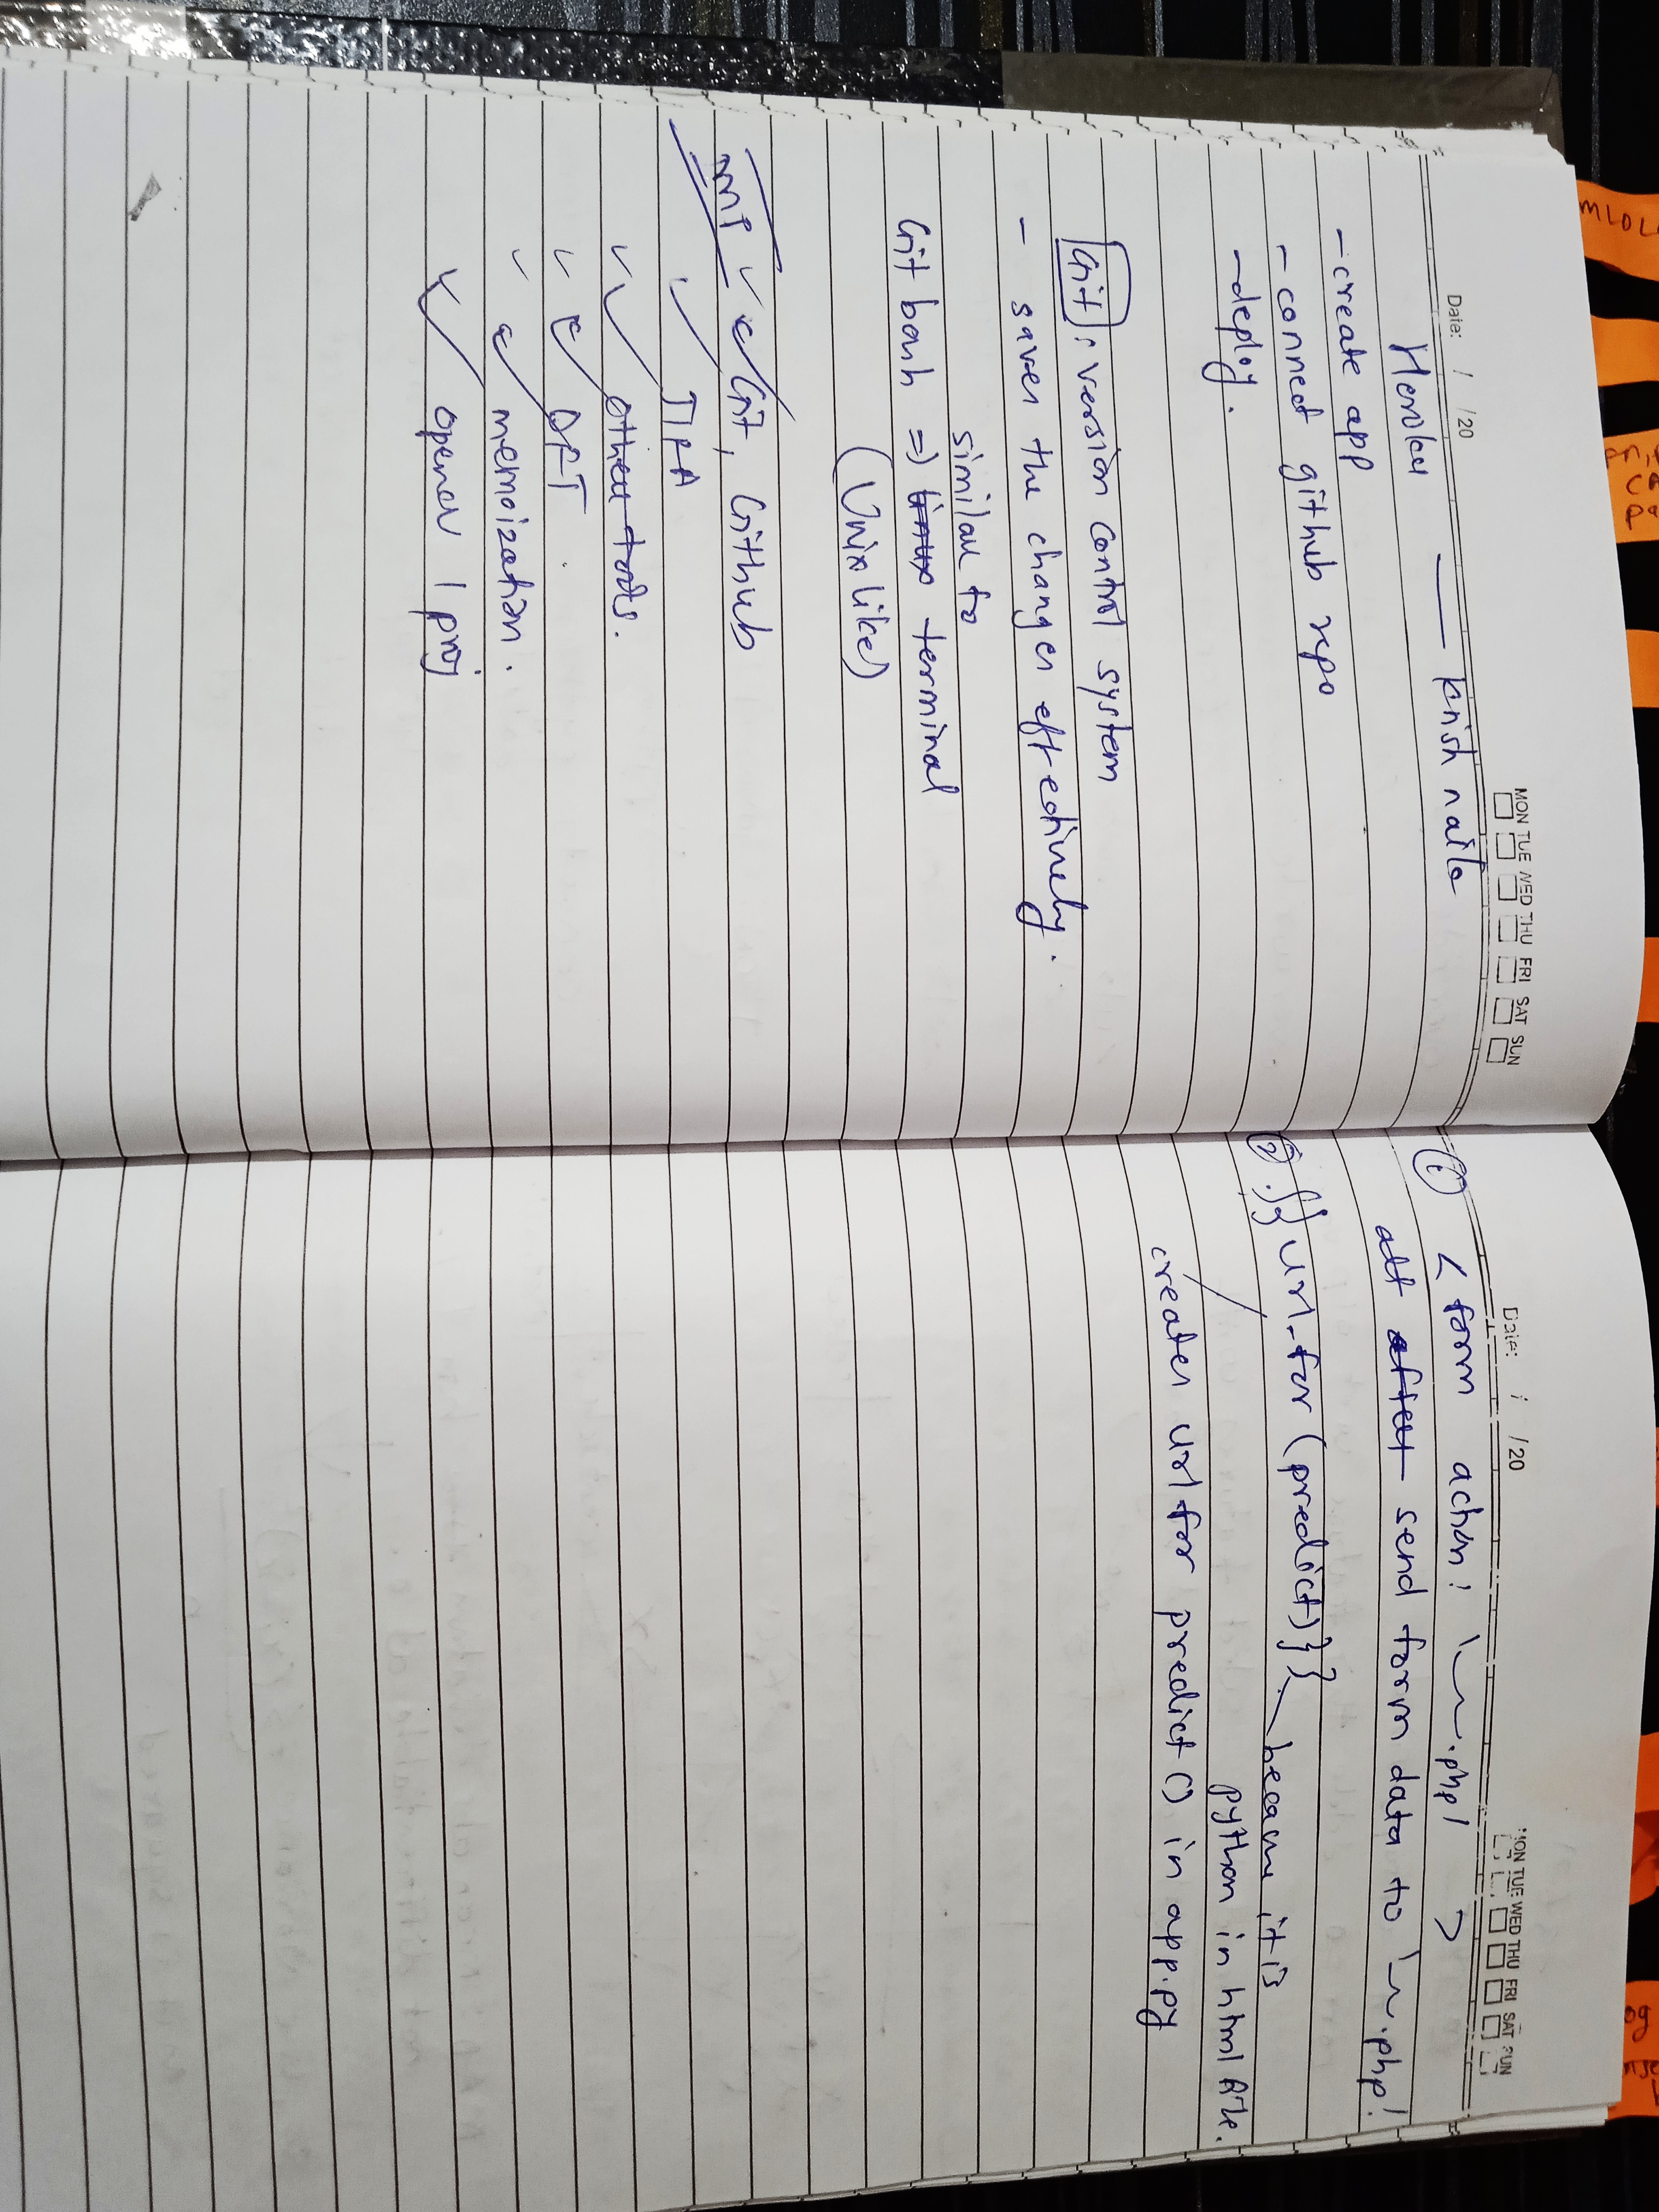 Date: / /20
MON TUE WED THU FRI SAT SUN
Heroku — krish naik
- create app
- connect github repo
- deploy.
Git : version control system
- saves the changes effectively.
similar to
Git bash => linux terminal
(Unix like)
IMP Git, Github
JIRA
other tools.
DFT.
memoization.
opener 1 proj
Date: / /20
MON TUE WED THU FRI SAT SUN
① < form action: .php! >
send form data to .php!
② {{ url-for (predict)}} because it is
python in html file.
creates url for predict () in app.py
MLOL